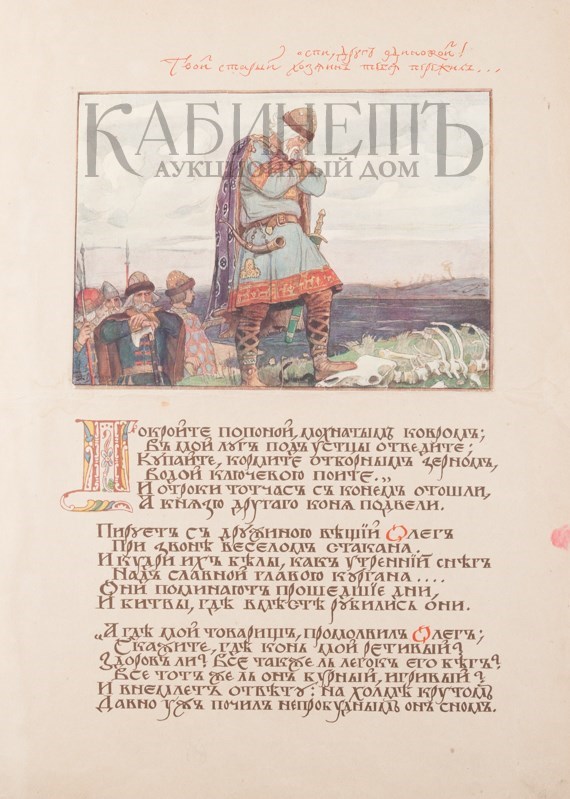 спи, другъ одинокой!
Твой старый хозяинъ тебя пережилъ...
КАБИНЕТЪ
АУКЦИОННЫЙ ДОМ
Покройте попоной, мохнатымъ ковромъ;
Въ мой лугъ подъ устцы отведите;
Купайте, кормите отборнымъ зерномъ,
Водой ключевою поите.„
И отроки тотчасъ съ конемъ отошли,
А князю другаго коня подвели.
Пируетъ съ дружиною вѣщій Олегъ
При звонѣ веселомъ стакана.
И кудри ихъ бѣлы, какъ утренній снѣгъ
Надъ славной главою кургана....
Они поминаютъ прошедшіе дни,
И битвы, гдѣ вмѣстѣ рубились они.
„А гдѣ мой товарищъ, промолвилъ Олегъ;
Скажите, гдѣ конь мой ретивый?
Здоровъ ли? Все также ль легокъ его бѣгъ?
Все тотъ же ль онъ бурный, игривый?
И внемлетъ отвѣту: на холмѣ крутомъ
Давно ужъ почилъ непробуднымъ онъ сномъ.